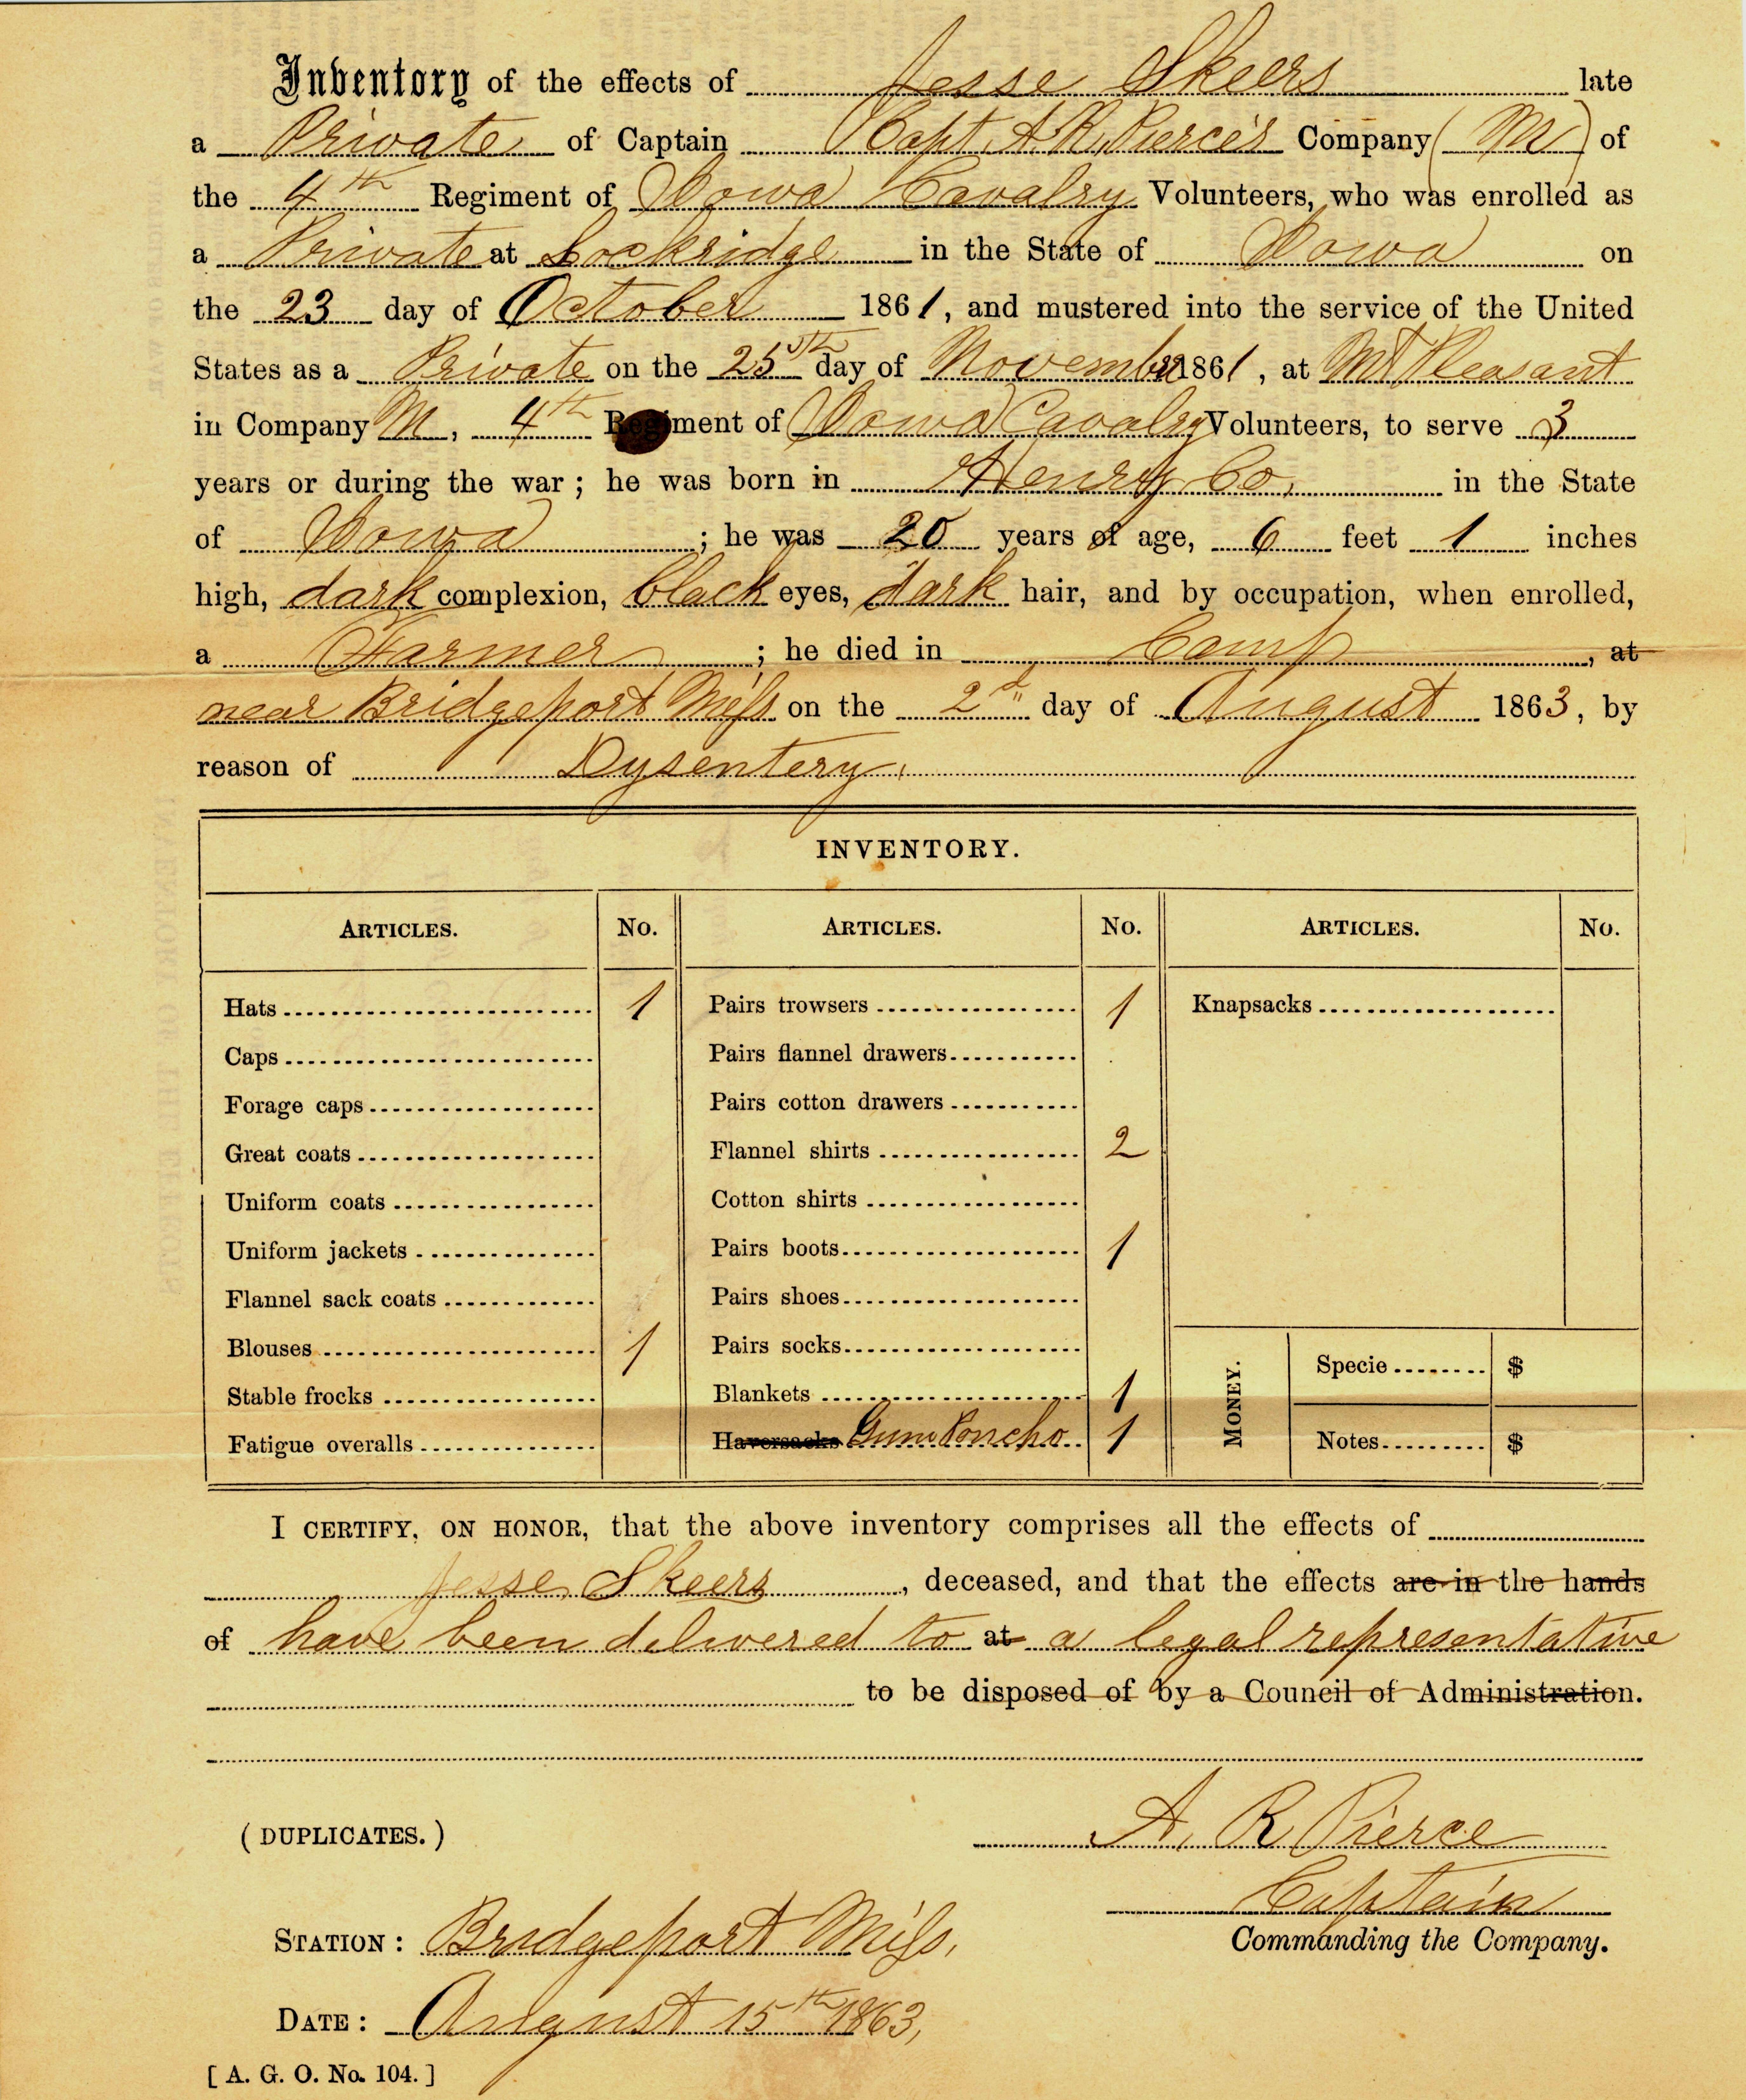 Inventory of the effects of Jesse Skeers late
a Private of Captain Capt. A. R. Pierce's Company ( M ) of
the 4th Regiment of Iowa Cavalry Volunteers, who was enrolled as
a Private at Lockridge in the State of Iowa on
the 23 day of October 1861, and mustered into the service of the United
States as a Private on the 25th day of November 1861, at Mt Pleasant
in Company M, 4th Regiment of Iowa Cavalry Volunteers, to serve 3
years or during the war; he was born in Henry Co, in the State
of Iowa; he was 20 years of age, 6 feet 1 inches
high, dark complexion, black eyes, dark hair, and by occupation, when enrolled,
a Farmer; he died in Camp, at
near Bridgeport Miss on the 2d day of August 1863, by
reason of Dysentery.
INVENTORY.
ARTICLES. No. ARTICLES. No. ARTICLES. No.
Hats 1 Pairs trowsers 1 Knapsacks
Caps Pairs flannel drawers
Forage caps Pairs cotton drawers
Great coats Flannel shirts 2
Uniform coats Cotton shirts
Uniform jackets Pairs boots 1
Flannel sack coats Pairs shoes
Blouses 1 Pairs socks
MONEY. Specie $
Stable frocks Blankets 1
Fatigue overalls Haversacks Gum Poncho 1 Notes $
I CERTIFY, ON HONOR, that the above inventory comprises all the effects of
Jesse Skeers, deceased, and that the effects are in the hands
of have been delivered to at a legal representative
to be disposed of by a Council of Administration.
(DUPLICATES.) A. R Pierce
Captain
STATION: Bridgeport Miss. Commanding the Company.
DATE: August 15th 1863,
[A. G. O. No. 104.]